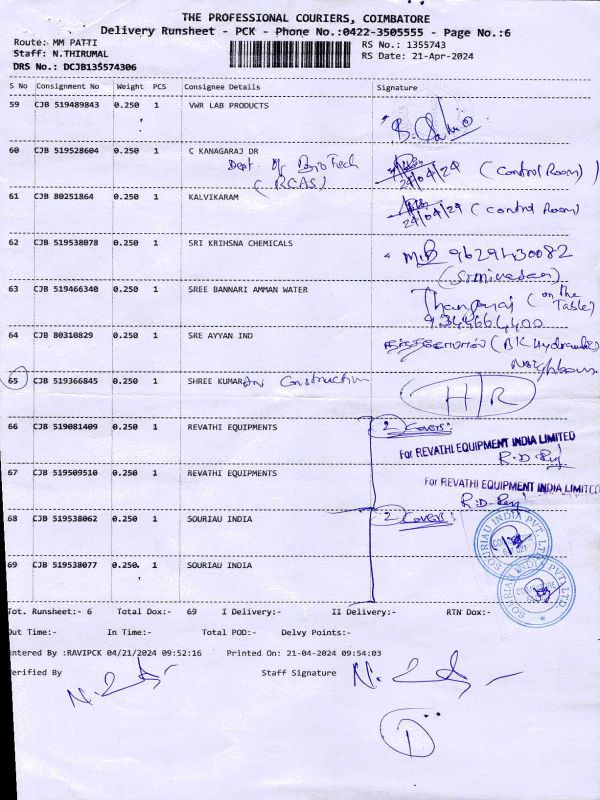 THE PROFESSIONAL COURIERS, COIMBATORE
Delivery Runsheet - PCK - Phone No.:0422-3505555 - Page No.:6
Route: MM PATTI
RS No.: 1355743
Staff: N.THIRUMAL
RS Date: 21-Apr-2024
DRS No.: DCJB135574306
S No Consignment No Weight PCS Consignee Details Signature
59 CJB 519489843 0.250 1 VWR LAB PRODUCTS
60 CJB 519528604 0.250 1 C KANAGARAJ DR
Dept. of BioTech (Control Room)
(RCAS) 24/04/24
61 CJB 80251864 0.250 1 KALVIKARAM
24/04/24 (Control Room)
62 CJB 519538078 0.250 1 SRI KRIHSNA CHEMICALS
9629430082
(Srinivasan)
63 CJB 519466340 0.250 1 SREE BANNARI AMMAN WATER
Thangaraj (on the Table)
9344664400
64 CJB 80310829 0.250 1 SRE AYYAN IND
(BK Hydraulic)
Neighbour
65 CJB 519366845 0.250 1 SHREE KUMARAN Construction
H/R
66 CJB 519081409 0.250 1 REVATHI EQUIPMENTS
2 Covers:
For REVATHI EQUIPMENT INDIA LIMITED
67 CJB 519509510 0.250 1 REVATHI EQUIPMENTS
For REVATHI EQUIPMENT INDIA LIMITED
68 CJB 519538062 0.250 1 SOURIAU INDIA
2 Covers:
SOURIAU INDIA PVT. LTD
69 CJB 519538077 0.250 1 SOURIAU INDIA
SOURIAU INDIA PVT. LTD
Tot. Runsheet:- 6 Total Dox:- 69 I Delivery:- II Delivery:- RTN Dox:-
Out Time:- In Time:- Total POD:- Delvy Points:-
Entered By :RAVIPCK 04/21/2024 09:52:16 Printed On: 21-04-2024 09:54:03
Verified By Staff Signature